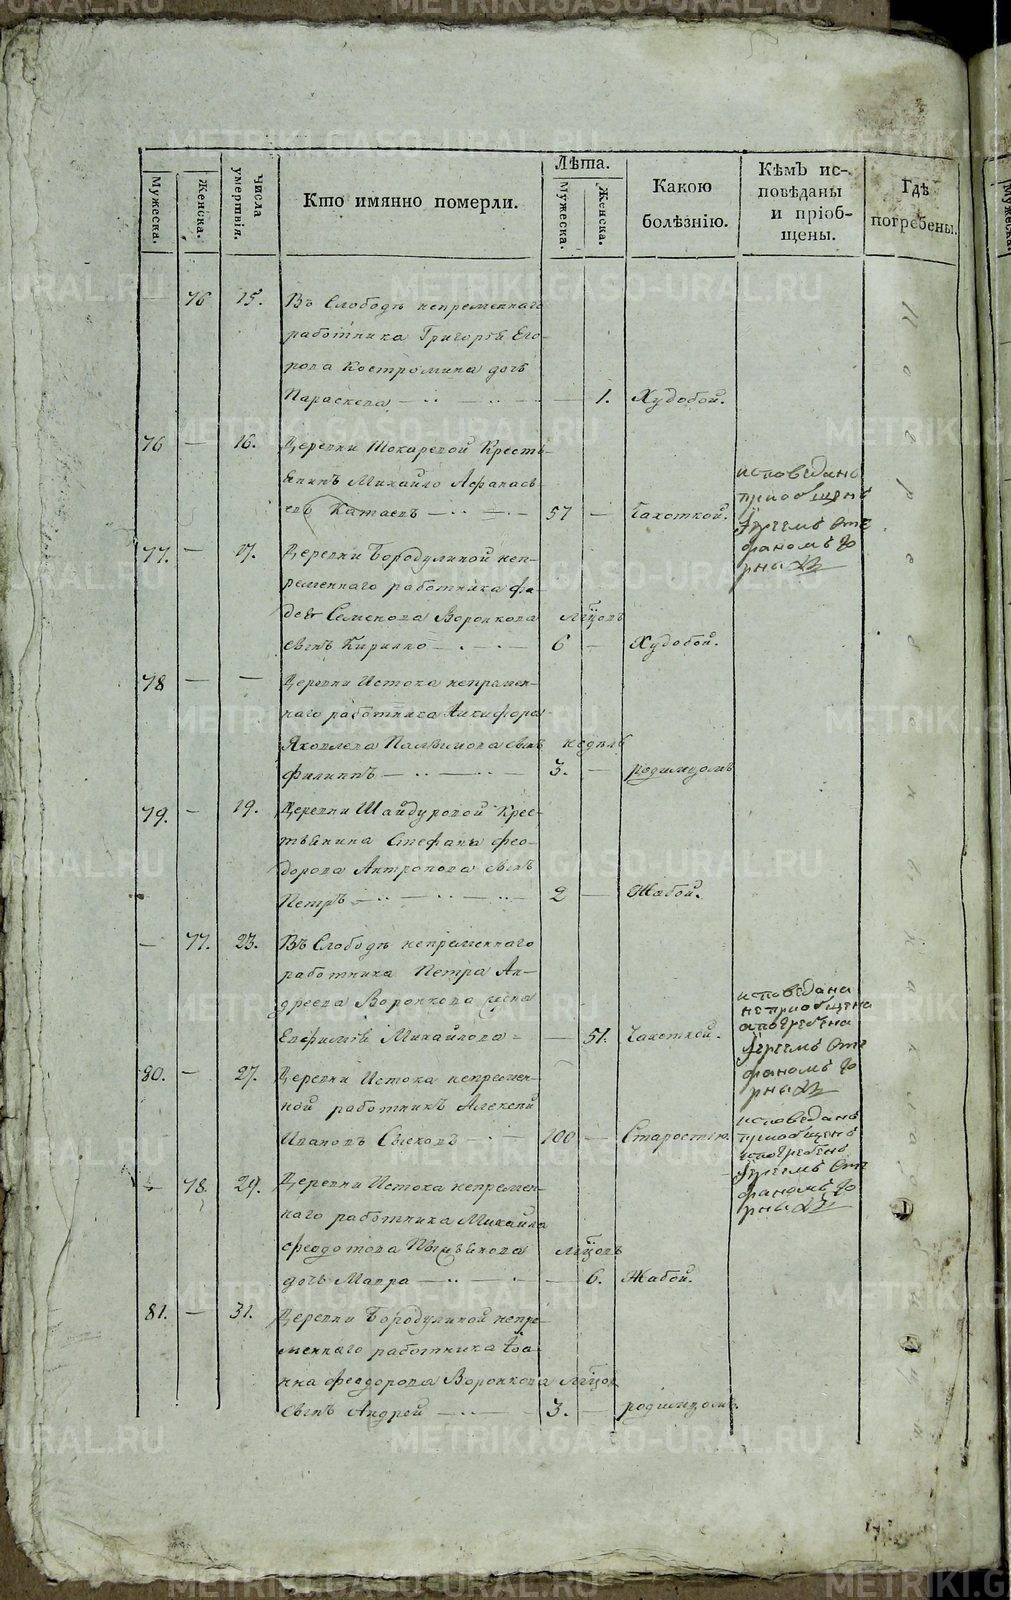 Мужеска.
Женска.
Числа умертвія.
Кто имянно померли.
Лѣта.
Мужеска.
Женска.
Какою болѣзнію.
Кѣмъ исповѣданы и пріобщены.
Где погребены.
76 15. Въ Слободѣ непременнаго
работника Григорья Его-
рова Костромина дочь
Параскева — 1. Худобой.
76 — 16. Деревни Токаревой Кресть-
янинъ Михайло Афанась-
евъ Катаевъ — 57 — Чахоткой.
исповеданъ
приобщенъ
77. — 17. Деревни Бородулиной неп-
ременнаго работника Фа-
дея Семенова Воронкова мѣсцовъ
сынъ Кирилло — 6 — Худобой.
78 — — Деревни Истока непремен-
наго работника Никифора
Яковлева сынъ недѣль
Филиппъ — 3. — родимцомъ
79. — 19. Деревни Шайдуровой Крес-
тьянина Стефана Фео-
дорова Антропова сынъ
Петръ — 2 — Жабой.
— 77. 23. Въ Слободѣ непременнаго
работника Петра Ан-
дреева Воронкова жена
Евфимія Михайлова — 51. Чахоткой.
исповедана
неприобщена
апогребена
80. — 27. Деревни Истока непремен-
ной работникъ Алексей
Ивановъ — 100 — Старостью.
исповеданъ
приобщенъ
ипогребенъ
— 78. 29. Деревни Истока непремен-
наго работника Михайла
Феодотова мѣсцовъ
дочь Мавра — 6. Жабой.
81. — 31. Деревни Бородулиной непре-
меннаго работника Іоа-
нна Феодорова Воронкова мѣсцов
сынъ Андрей — 3. — родимцомъ.
METRIKI.GASO-URAL.RU